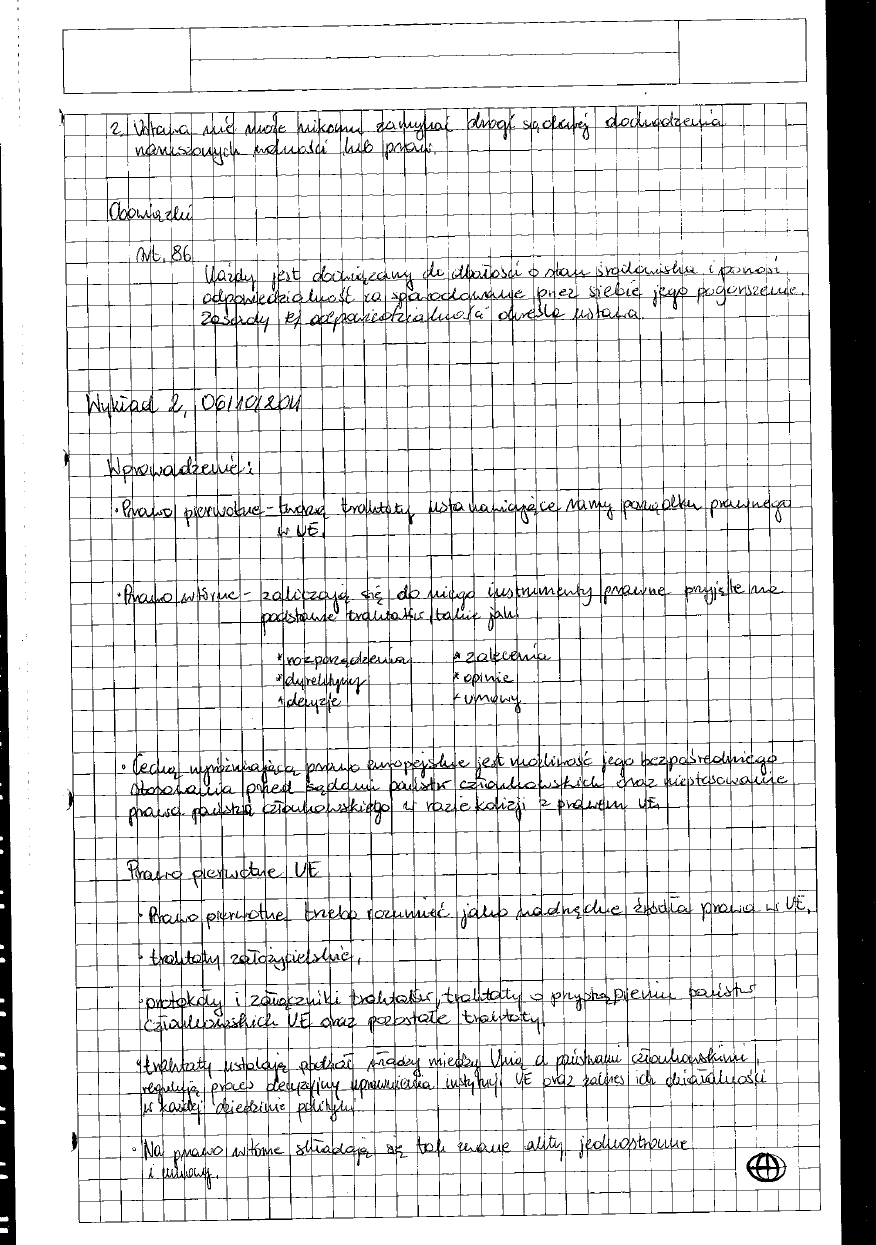 2. Ustawa nie może nikomu zamykać drogi sądowej dochodzenia
naruszonych wolności lub praw.
Obowiązki
Art. 86
Każdy jest obowiązany do dbałości o stan środowiska i ponosi
odpowiedzialność za spowodowane przez siebie jego pogorszenie.
Zasady tej odpowiedzialności określa ustawa.
Wykład 2, 06/10/2011
Wprowadzenie:
· Prawo pierwotne - tworzą traktaty ustanawiające ramy porządku prawnego
w UE.
· Prawo wtórne - zaliczają się do niego instrumenty prawne przyjęte na
podstawie traktatów, takie jak:
* rozporządzenia * zalecenia
* dyrektywy * opinie
* decyzje * umowy
· Cechą wyróżniającą prawo europejskie jest możliwość jego bezpośredniego
stosowania przed sądami państw członkowskich oraz niestosowanie
prawa państwa członkowskiego w razie kolizji z prawem UE.
Prawo pierwotne UE
· Prawo pierwotne trzeba rozumieć jako nadrzędne źródła prawa w UE,
· traktaty założycielskie,
· protokoły i załączniki traktatów, traktaty o przystąpieniu państw
członkowskich UE oraz pozostałe traktaty,
· traktaty ustalają podział władzy między Unią a państwami członkowskimi,
regulują proces decyzyjny, uprawnienia instytucji UE oraz zakres ich działalności
w każdej dziedzinie polityki.
· Na prawo wtórne składają się tak zwane akty jednostronne
i umowy.